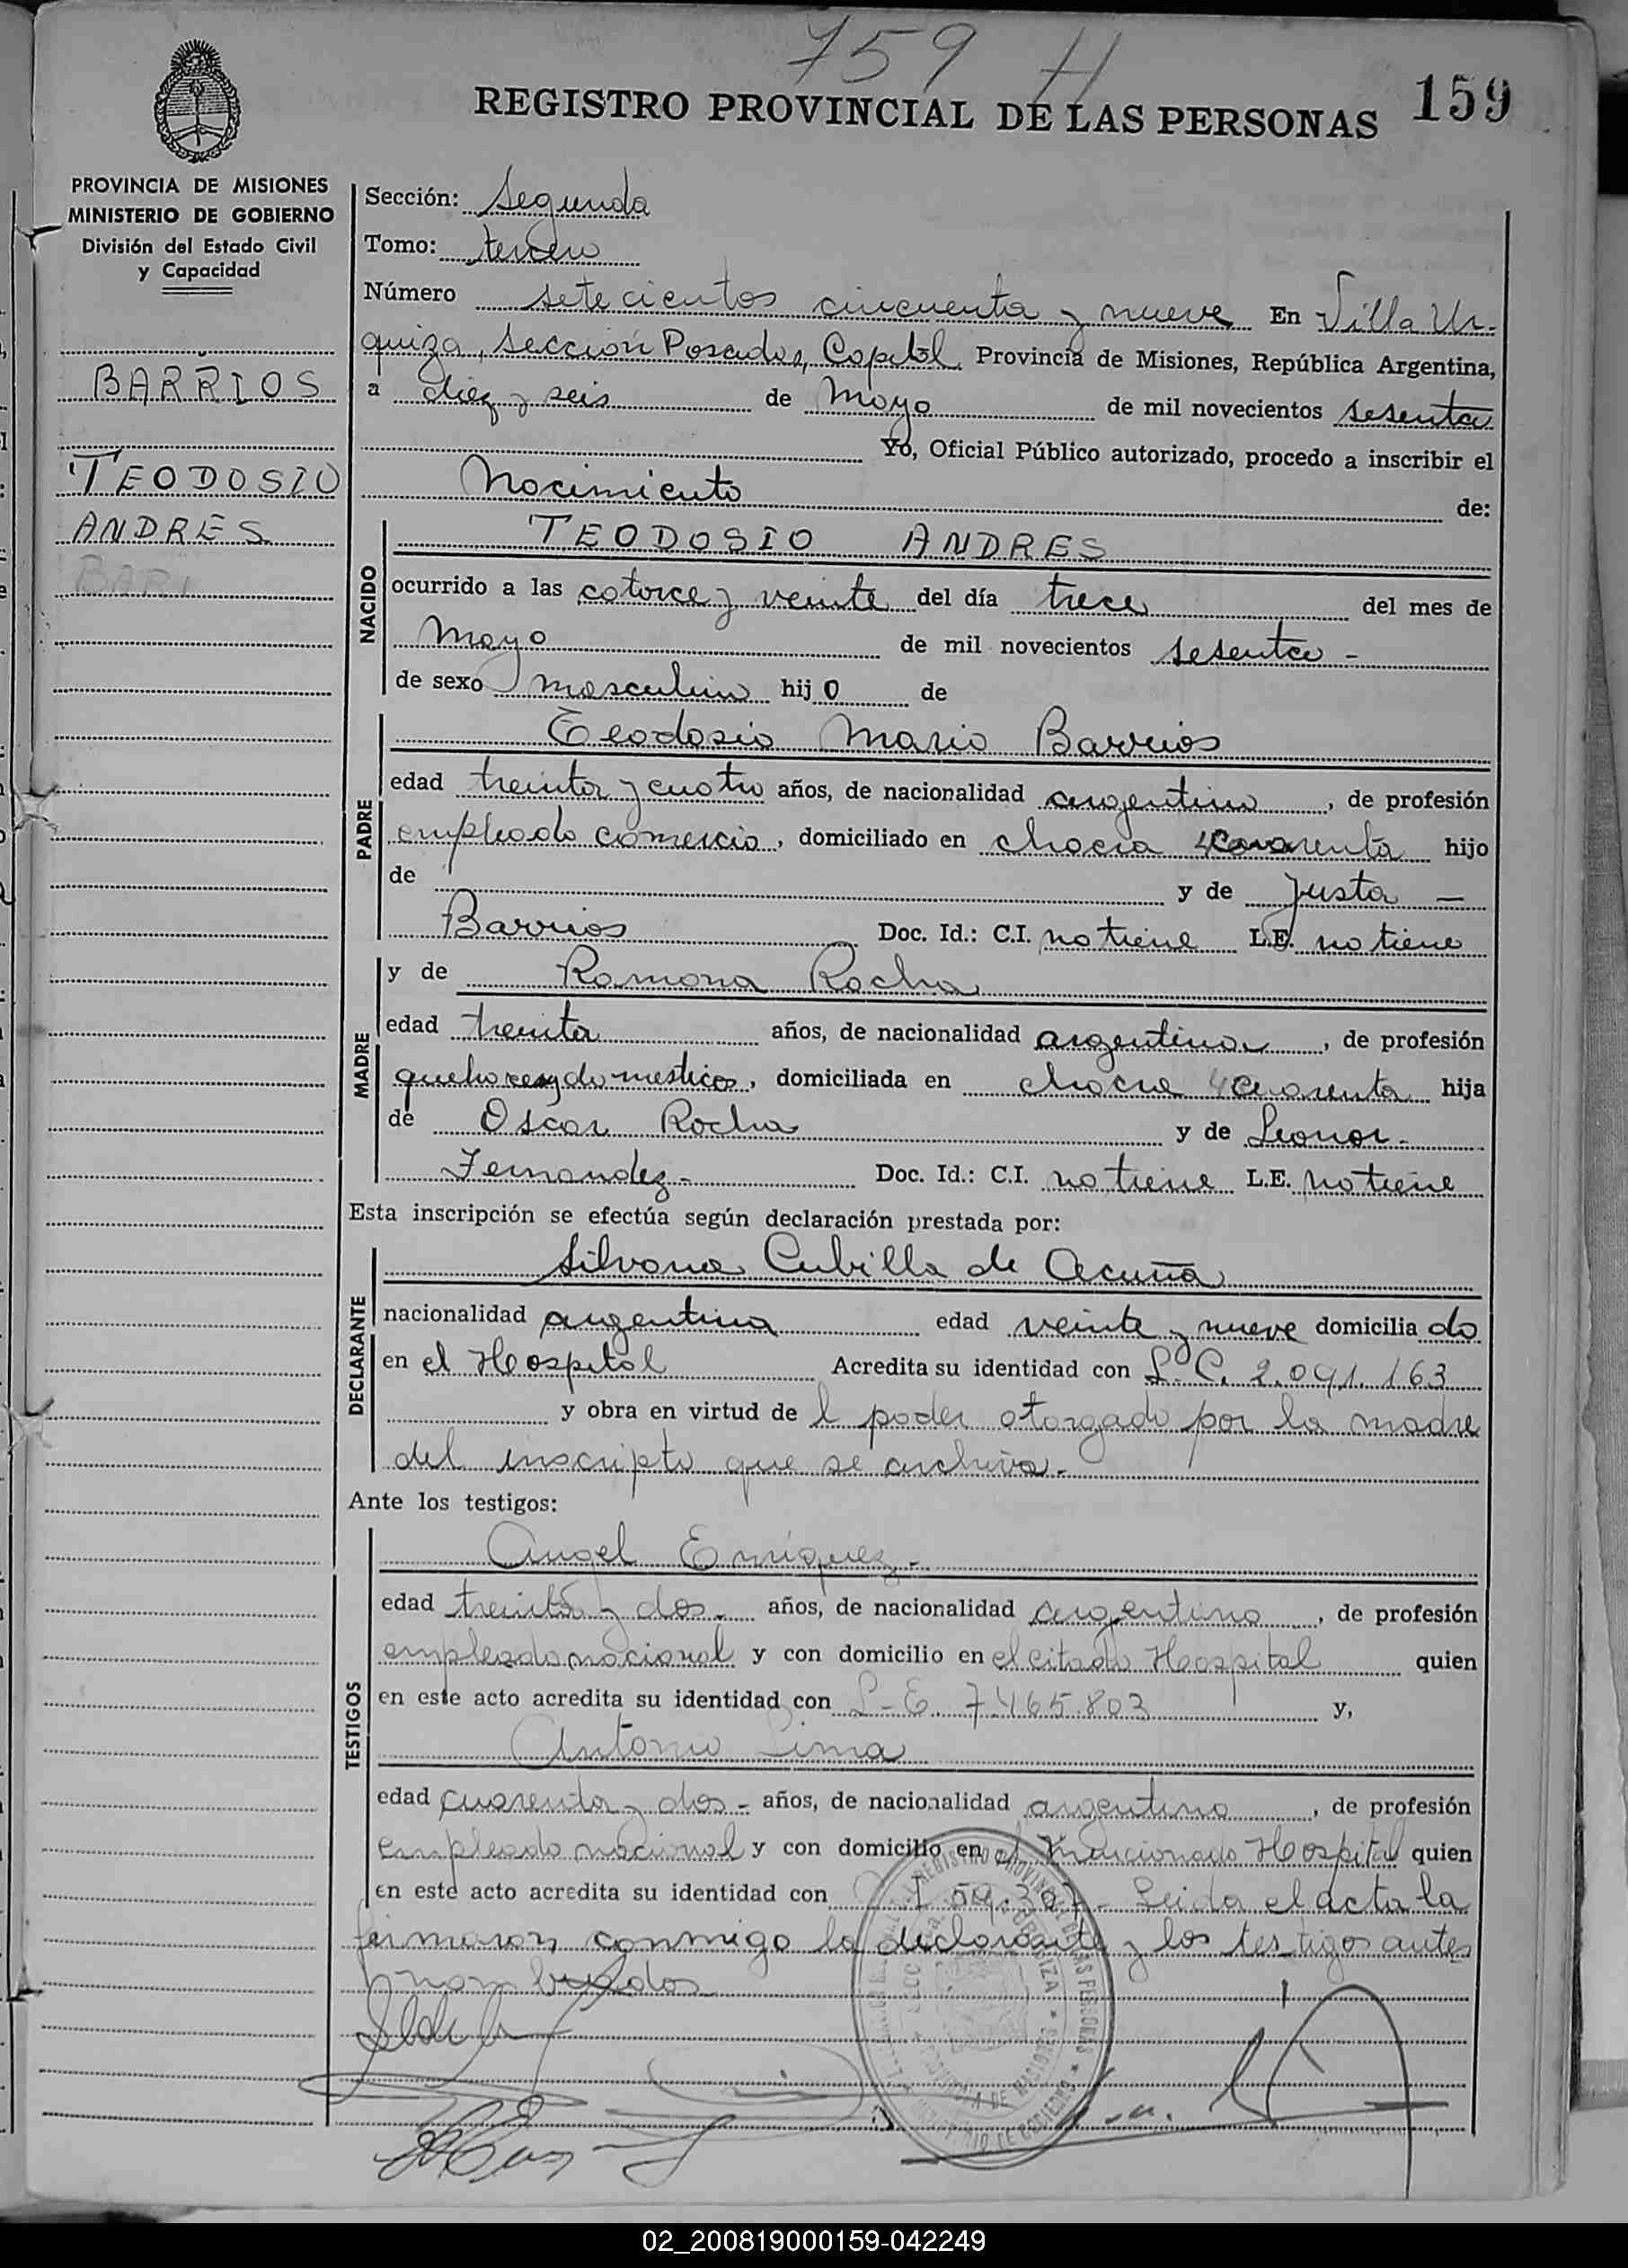 759 H
REGISTRO PROVINCIAL DE LAS PERSONAS 159
PROVINCIA DE MISIONES
MINISTERIO DE GOBIERNO
División del Estado Civil
y Capacidad
BARRIOS
TEODOSIO
ANDRES
BARI
Sección: Segunda
Tomo: tercero
Número setecientos cincuenta y nueve En Villa Ur-
quiza, Sección Posadas, Capital, Provincia de Misiones, República Argentina,
a diez y seis de Mayo de mil novecientos sesenta
Yo, Oficial Público autorizado, procedo a inscribir el
Nacimiento de:
NACIDO
TEODOSIO ANDRES
ocurrido a las catorce y veinte del día trece del mes de
Mayo de mil novecientos sesenta -
de sexo masculino hijo de
PADRE
Teodosio Mario Barrios
edad treinta y cuatro años, de nacionalidad argentino, de profesión
empleado comercio, domiciliado en chacra 40 cuarenta hijo
de y de Justa —
Barrios Doc. Id.: C.I. no tiene L.E. no tiene
MADRE
y de Ramona Rocha
edad treinta años, de nacionalidad argentina, de profesión
quehaceres domesticos, domiciliada en chacra 40 cuarenta hija
de Oscar Rocha y de Leonor-
Fernandez- Doc. Id.: C.I. no tiene L.E. no tiene
Esta inscripción se efectúa según declaración prestada por:
DECLARANTE
Silvana Cubilla de Acuña
nacionalidad argentina edad veinte y nueve domiciliado
en el Hospital Acredita su identidad con L.C. 2.091.163
y obra en virtud del poder otorgado por la madre
del inscripto que se archiva.-
Ante los testigos:
TESTIGOS
Angel Enriquez-
edad treinta y dos- años, de nacionalidad argentino, de profesión
empleado nacional y con domicilio en el citado Hospital quien
en este acto acredita su identidad con L-E. 7.465.803 y,
Antonio Lima
edad cuarenta y dos- años, de nacionalidad argentino, de profesión
empleado nacional y con domicilio en el mencionado Hospital quien
en este acto acredita su identidad con 59.307- Leida el acta la
firmaron conmigo la declarante y los testigos antes
nombrados
02_200819000159-042249